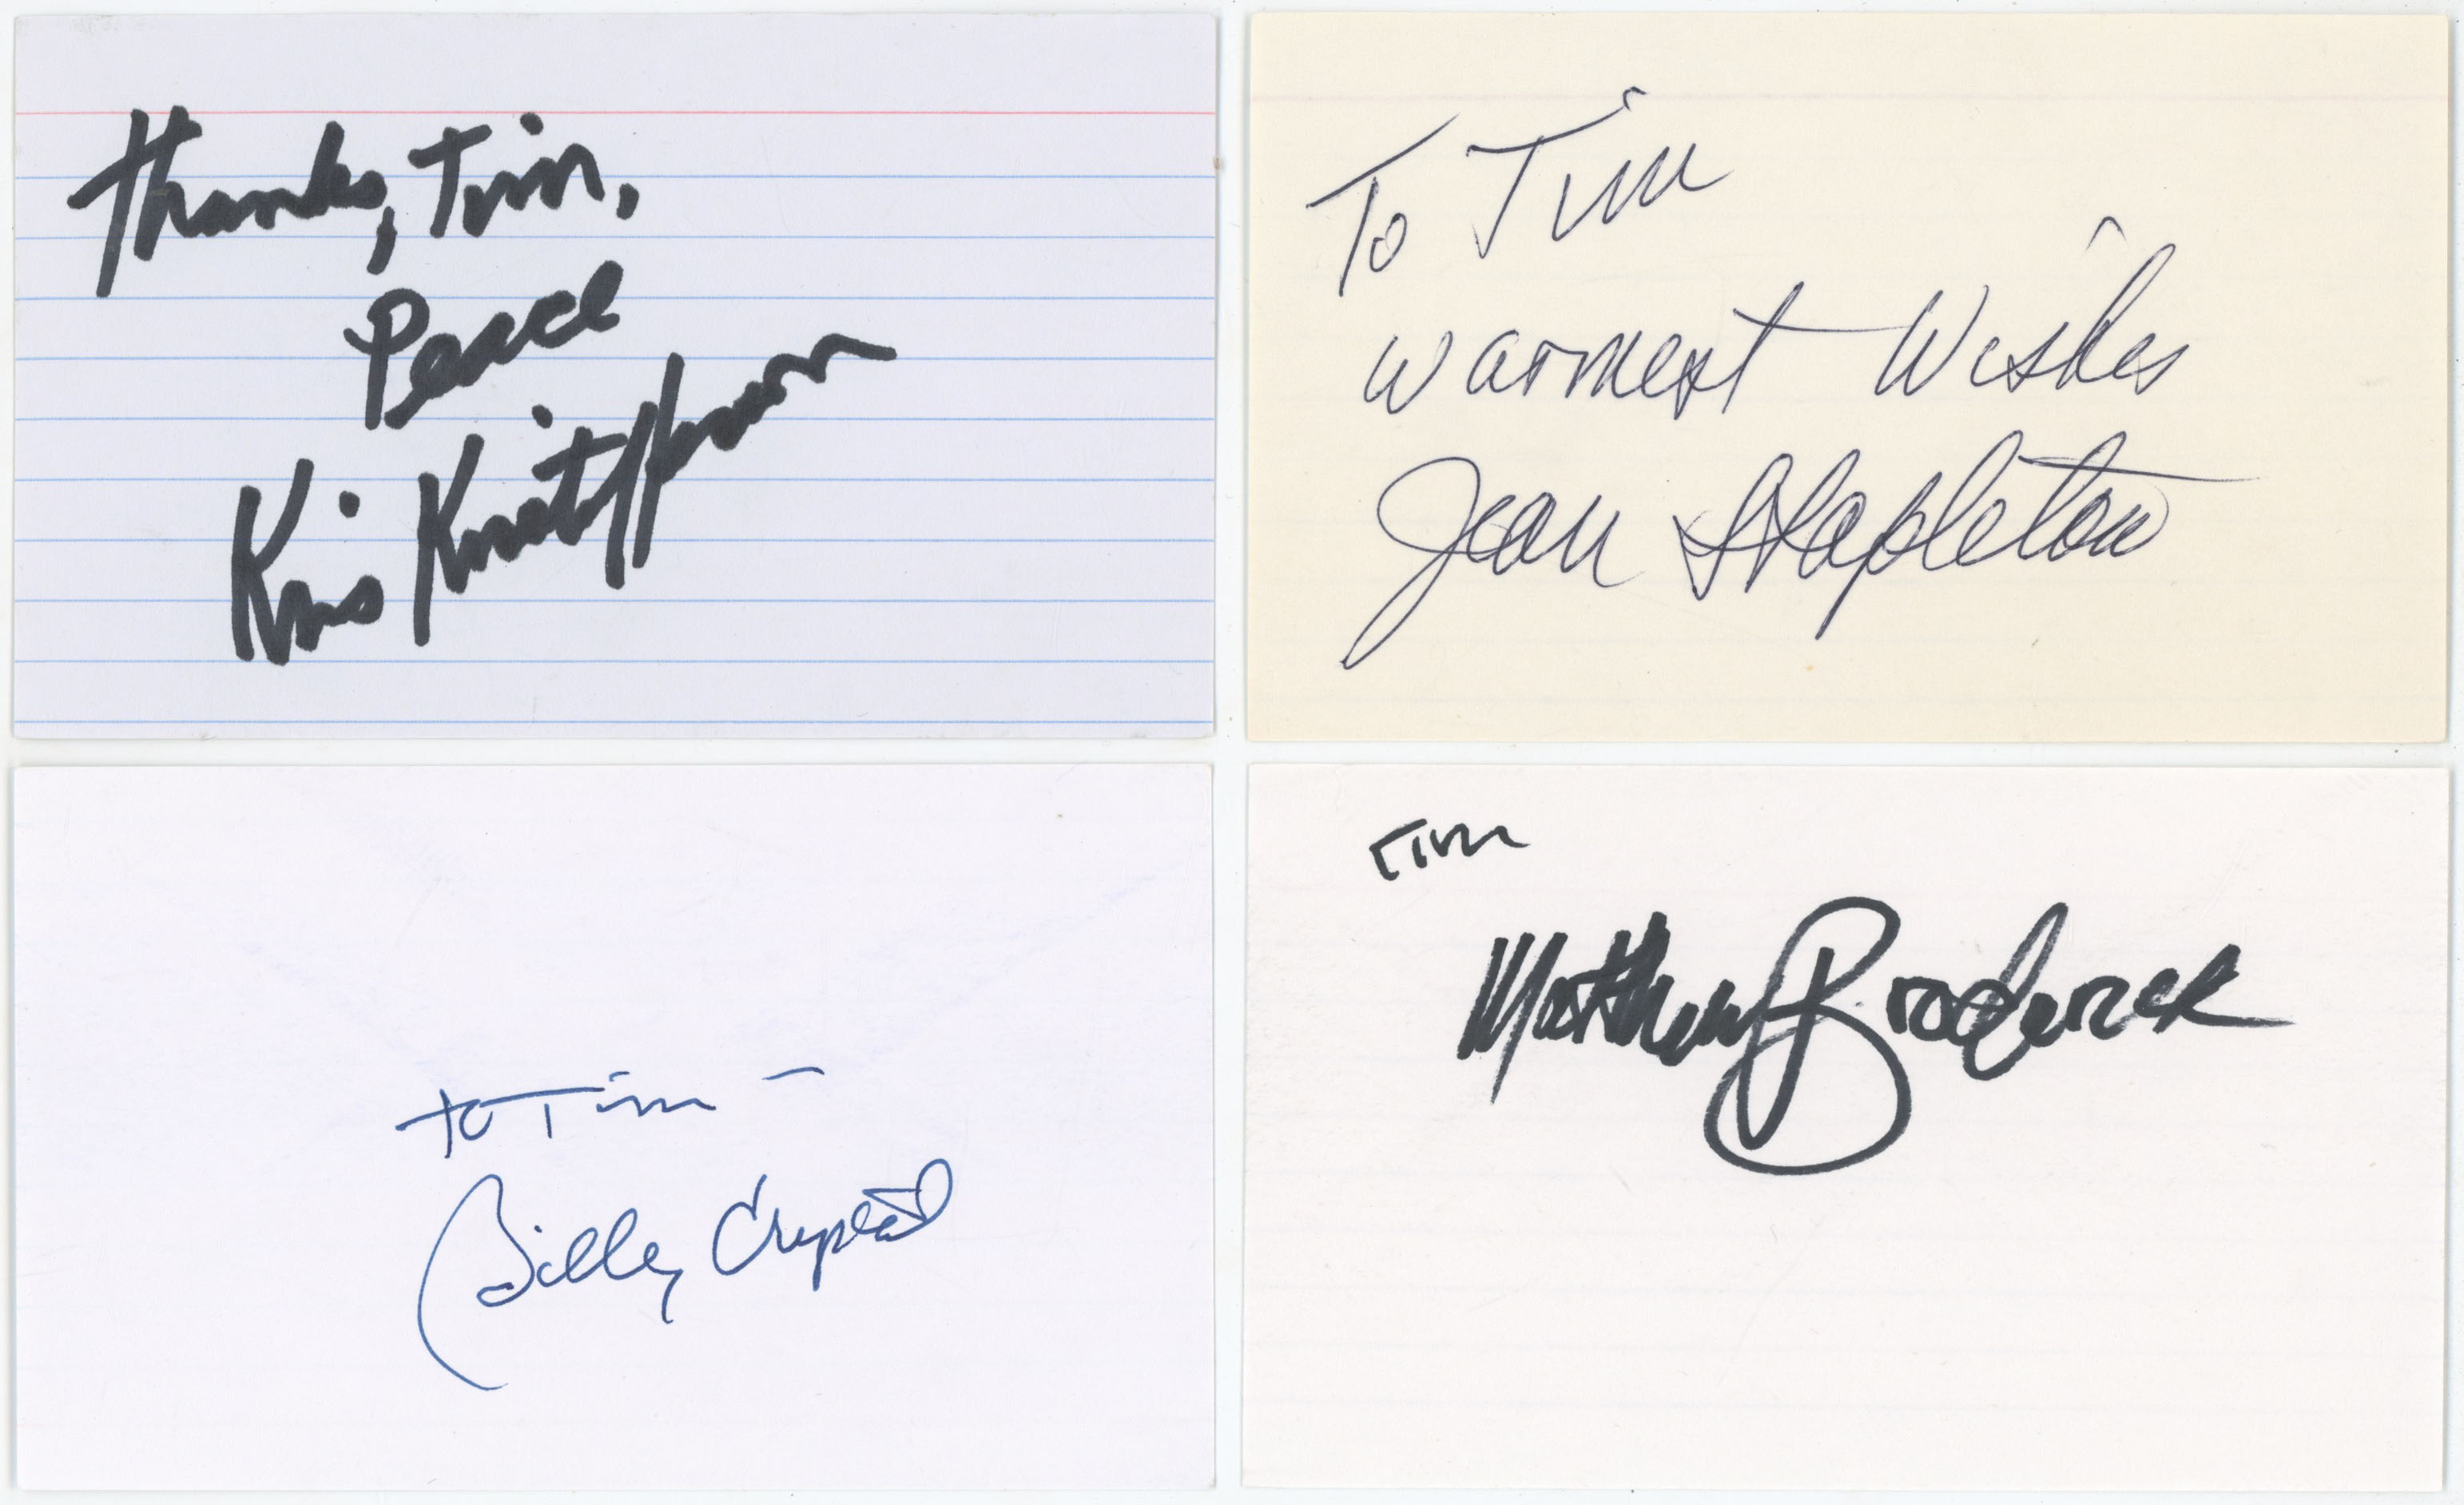 Thanks, Tim,
Peace
Kris Kristofferson
To Tim
Warmest Wishes
Jean Stapleton
to Tim –
Billy Crystal
Tim
Matthew Broderick